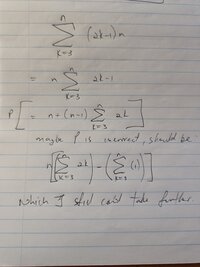 n
∑ (2k-1)n
k=3
= n ∑_{k=3}^{n} 2k-1
P [ = n + (n-1) ∑_{k=3}^{n} 2k ]
maybe P is incorrect, should be:
n [ ( ∑_{k=3}^{n} 2k ) - ( ∑_{k=3}^{n} (1) ) ]
Which I still can't take further.